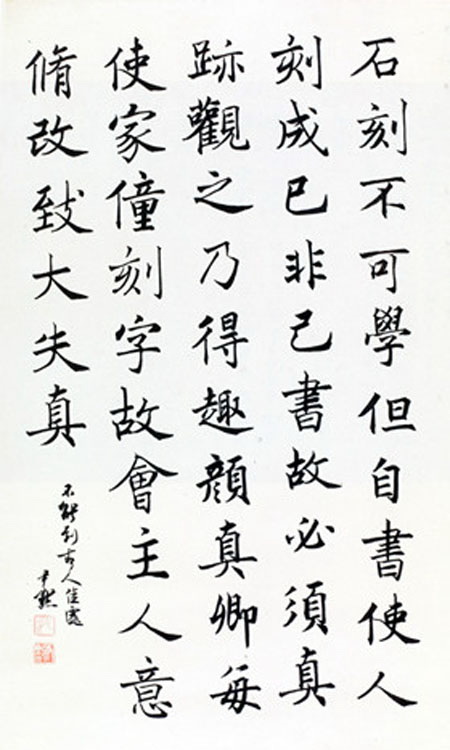 石刻不可學但自書使人
刻成已非己書故必須真
跡觀之乃得趣顏真卿每
使家僮刻字故會主人意
脩改致大失真
不能到古人佳處
尹默